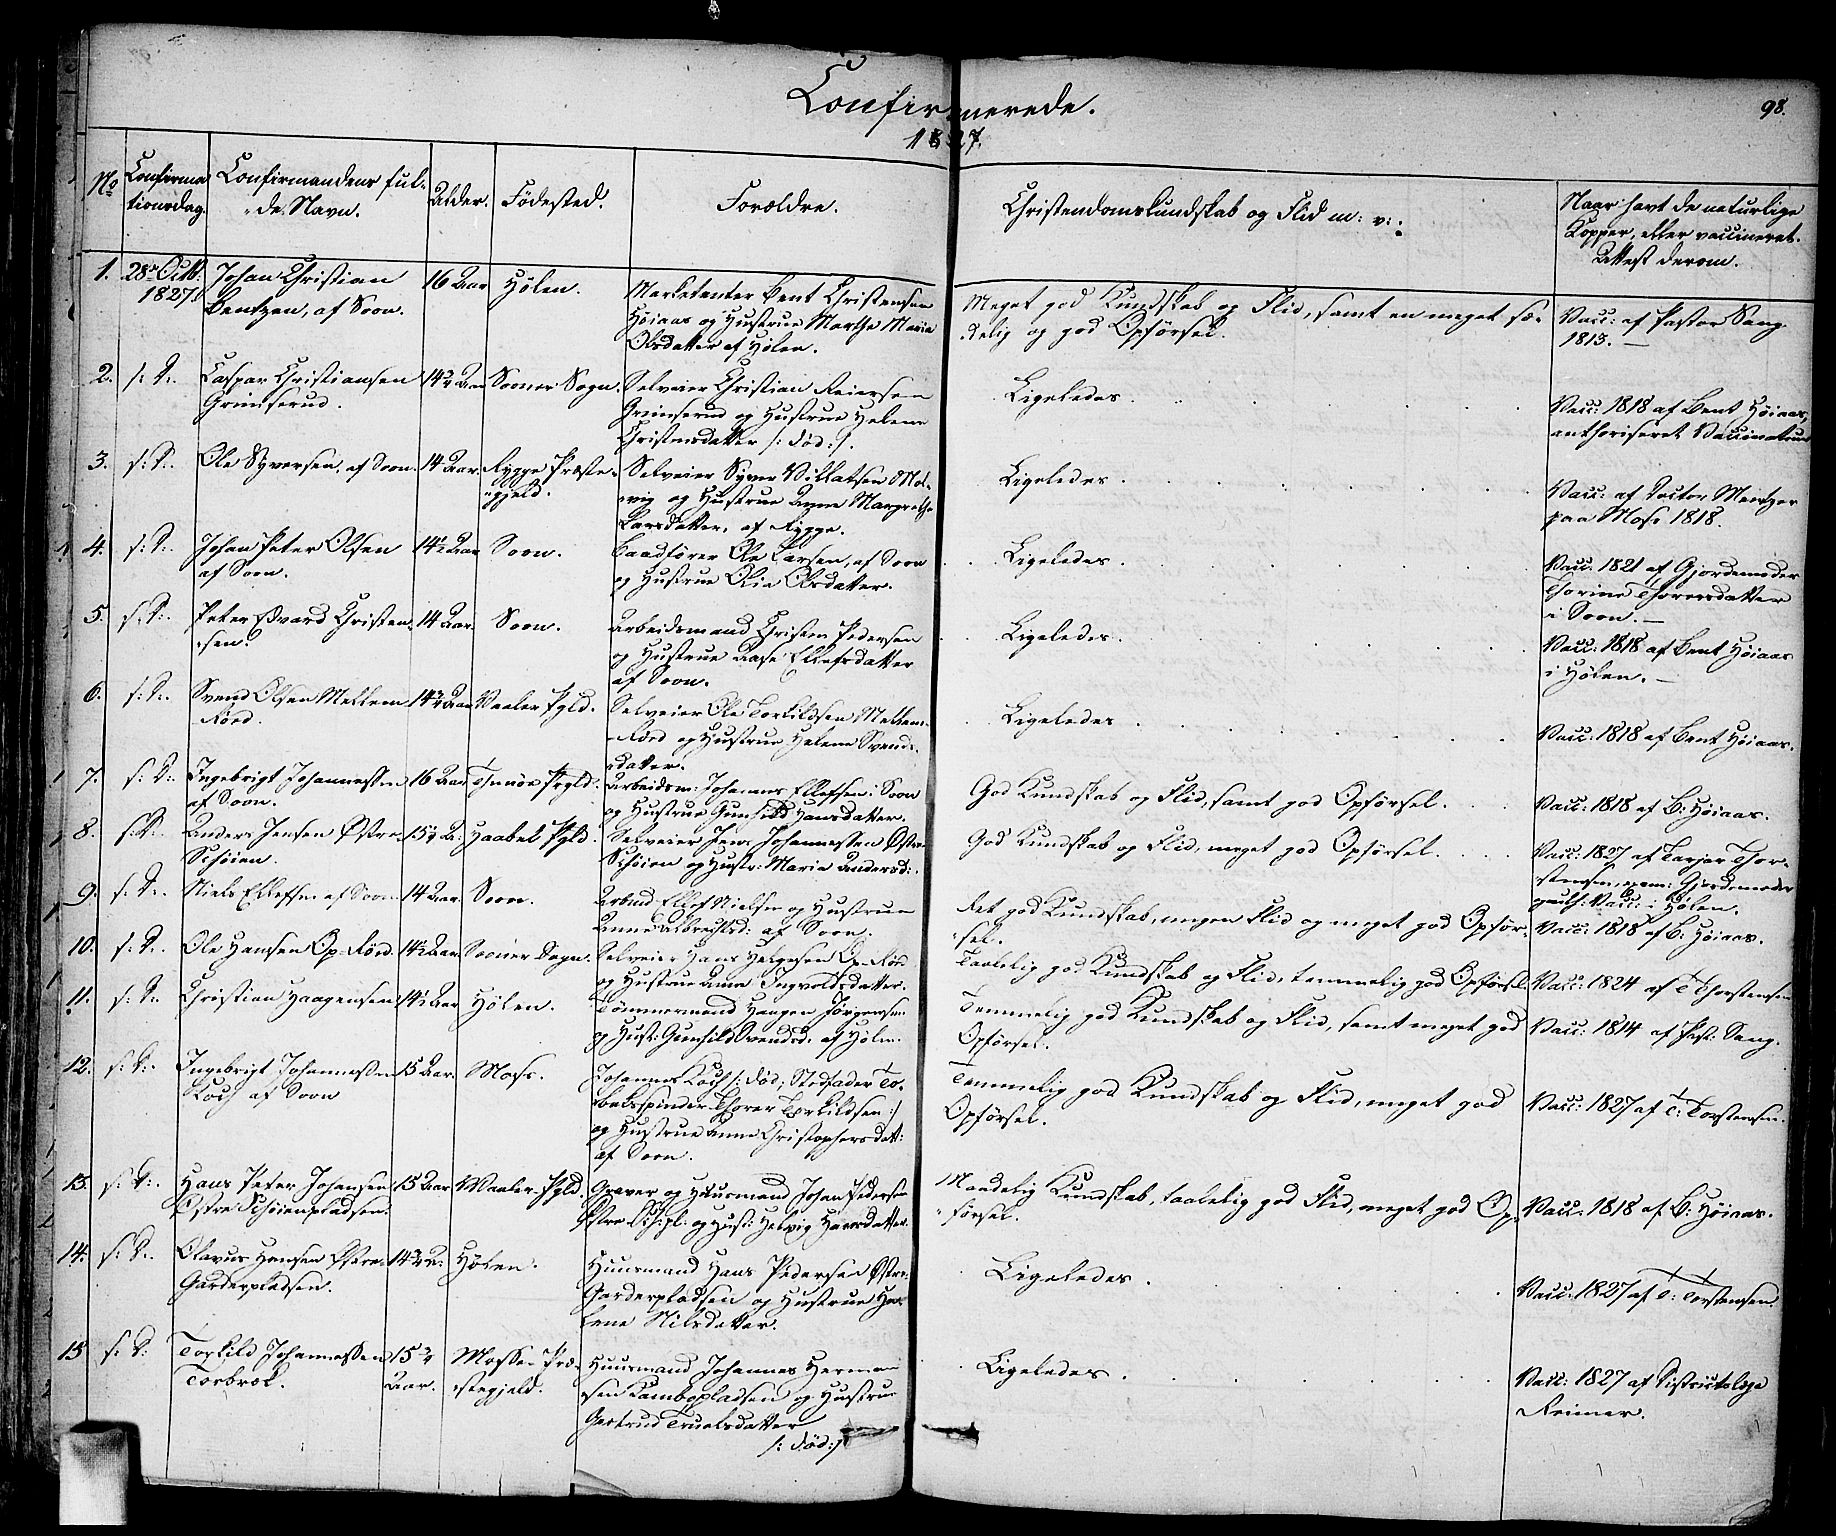 Confirmerede.
98.
1827.
No
Confirma
tionsdag.
Confirmandens ful-
de Navn.
Alder.
Fødested.
Forældre.
Christendomskundskab og Flid m: v:
Naar havt de naturlige
Kopper, eller vaccineret.
Attest derom.
1. 28de Octbr. 1827.
Johan Christian
Bentzen, af Soon.
16 Aar
Hølen.
Marketenter Bent Christensen
Høiaas og Hustrue Marthe Maria
Olsdatter af Hølen.
Meget god Kundskab og Flid, samt en meget sæ-
delig og god Opførsel.
Vacc: af Pastor Sang
1813. —
2. s: D:.
Caspar Christiansen
Grimserud.
14 3/4 Aar
Sooner Sogn.
Selveier Christian Reiersen
Grimserud og Hustrue Helene
Christensdatter /: død :/.
Ligeledes.
Vacc: 1818 af Bent Høiaas,
authoriseret Vaccinateur
3. s: D:.
Ole Syversen, af Soon.
14 Aar.
Rygge Præste-
gjeld.
Selveier Syver Villatsen
og Hustrue Anne Margrethe
Larsdatter, af Rygge.
Ligeledes.
Vacc: af Doctor Mentzer
paa Moss 1818.
4. s: D:.
Johan Peter Olsen
af Soon.
14 1/2 Aar
Soon.
Baadfører Ole Larsen, af Soon
og Hustrue Olia Olsdatter.
Ligeledes.
Vacc: 1821 af Gjordemoder
Thorine Thorersdatter
i Soon. —
5. s: D:.
Peter Edvard Christen-
sen.
14 Aar.
Soon.
Arbeidsmand Christen Pedersen
og Hustrue Aase Ellefsdatter
af Soon.
Ligeledes.
Vacc: 1818 af Bent Høiaas
i Hølen. —
6. s: D:.
Svend Olsen Mellem
Rød.
14 3/4 Aar
Vaaler Pgld.
Selveier Ole Torkildsen Mellem-
Rød og Hustrue Helene Svends-
datter.
Ligeledes
Vacc: 1818 af Bent Høiaas.
7. s: D:.
Ingebrigt Johannessen
af Soon.
16 Aar
Prgld.
Arbeidsm: Johannes Ellefsen i Soon
og Hustrue Gunhild Hansdatter.
God Kundskab og Flid, samt god Opførsel.
Vacc: 1818 af B: Høiaas.
8. s: D:.
Anders Jensen Østre
Schøien.
15 1/4 A:
Haabøl Pgld.
Selveier Jens Johannessen Østre
Schøien og Hustr: Maria Andersd:.
God Kundskab og Flid, meget god Opførsel.
Vacc: 1827 af Torger Thor-
stensen, exam: Gjordemoder
Vacc: i Hølen.
9. s: D:.
Niels Ellefsen af Soon
14 Aar
Soon.
Arbmd Ellef Nielsen og Hustrue
Anne Albrechtsd: af Soon.
Ret god Kundskab, megen Flid og meget god Opfør-
sel.
Vacc: 1818 af B: Høiaas.
10. s: D:.
Ole Hansen Op-Rød.
14 1/2 Aar
Sooner Sogn.
Selveier Hans Helgesen Op-Rød
og Hustrue Anna Ingvoldsdatter.
Taalelig god Kundskab og Flid, temmelig god Opførsel
Vacc: 1824 af T Thorstensen
11. s: D:.
Christian Haagensen
14 1/2 Aar
Hølen.
Tømmermand Haagen Jørgensen
og Hust: Gunhild Svendsd. af Hølen.
Temmelig god Kundskab og Flid, samt meget god
Opførsel.
Vacc: 1814 af Past: Sang.
12. s: D:.
Ingebrigt Johannessen
Koch af Soon
15 Aar.
Moss.
Johannes Koch /: død; Stedfader To-
bakspinder Thorer Torkildsen :/
og Hustrue Anne Christophersdatt:
af Soon.
Temmelig god Kundskab og Flid, meget god
Opførsel.
Vacc: 1827 af T: Torstensen.
13. s: D:.
Hans Peter Johansen
Østre Schøienpladsen.
15 Aar
Vaaler Pgld.
Graver og Huusmand Johan Pedersen
Østre Sch:pl: og Hust: Helvig Hansdatter.
Maadelig Kundskab, taalelig god Flid, meget god Op-
førsel.
Vacc: 1818 af B: Høiaas.
14. s: D:.
Olavus Hansen Østre
Garderpladsen.
14 3/4 A:
Hølen.
Huusmand Hans Pedersen Østre
Garderpladsen og Hustrue He-
lene Nilsdatter.
Ligeledes.
Vacc: 1827 af T: Torstensen.
15 s: D:
Torkild Johannessen
Torbræk.
15 3/4
Aar.
Mosse Præ-
stegjeld.
Huusmand Johannes Herman-
sen Kambopladsen og Hustrue
Gertrud Truelsdatter
/: død :/
Ligeledes.
Vacc: 1827 af Districtslæge
Reimer.